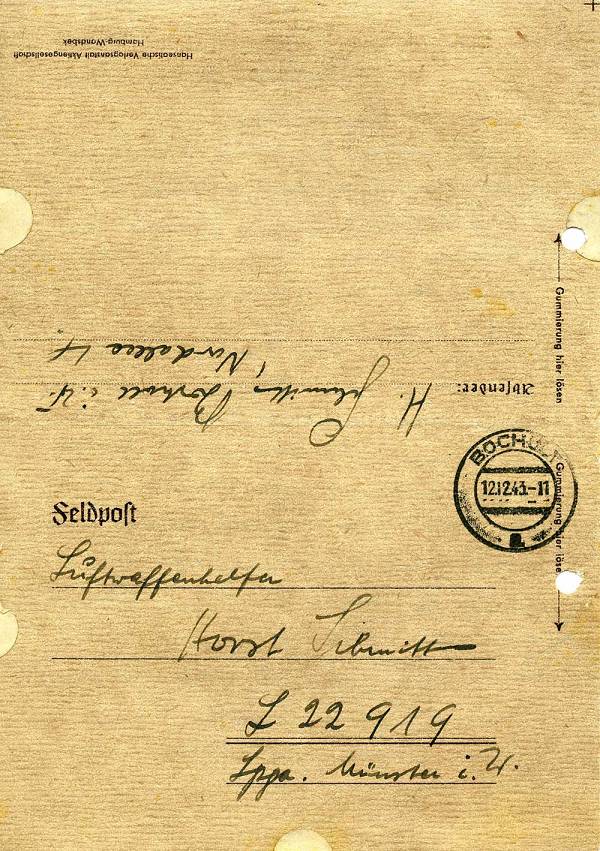 Hanseatische Verlagsanstalt Aktiengesellschaft
Hamburg-Wandsbek
Gummierung hier lösen
Absender: H. Schmitt, Bocholt i. W.
Nordallee 4
BOCHOLT
12.12.43.-11
a
Gummierung hier lösen
Feldpost
Luftwaffenhelfer
Horst Schmitt
L 22 919
Lgpa. Münster i. W.